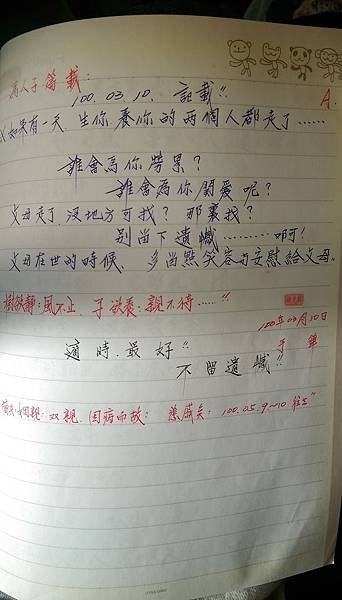 為人子 篇 載：
100. 03. 10. 記載!!
A.
如果有一天 生你養你的兩個人都走了……
誰會為你勞累？
誰會為你關愛呢？
父母走了. 沒地方可找？ 那裏找？
別留下遺憾………啊!
父母在世的時候、多留點笑容与安慰給父母。
樹欲靜；風不止 子欲養；親不待……!!
100年03月10日
手 筆
適時. 最好!!
不留遺憾!!
双親. 因病而故： 100. 05. 9.